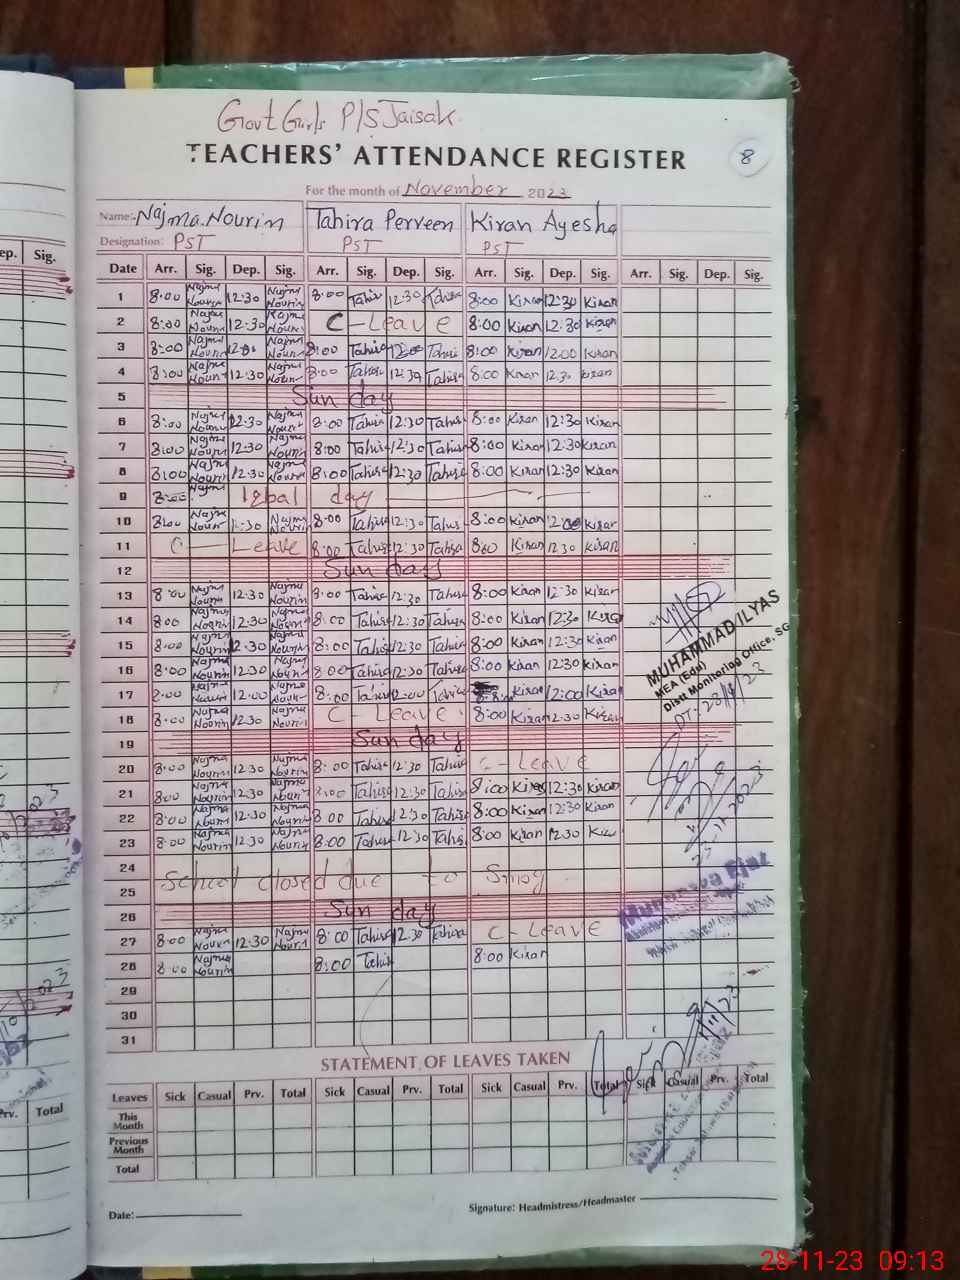 Govt Girls P/S Jaisak.
TEACHERS' ATTENDANCE REGISTER
8
For the month of November 2023
Name: Najma Nourin Tahira Perveen Kiran Ayesha
Designation: PST PST PST
ep. Sig.
Date Arr. Sig. Dep. Sig. Arr. Sig. Dep. Sig. Arr. Sig. Dep. Sig. Arr. Sig. Dep. Sig.
1 8:00 Najma Nourin 12:30 Najma Nourin 8:00 Tahira 12:30 Tahira 8:00 Kiran 12:30 Kiran
2 8:00 Najma Nourin 12:30 Najma Nourin C-Leave 8:00 Kiran 12:30 Kiran
3 8:00 Najma Nourin Najma Nourin 8:00 Tahira 12:00 Tahira 8:00 Kiran 12:00 Kiran
4 8:00 Najma Nourin 12:30 Najma Nourin 8:00 Tahira 12:30 Tahira 8:00 Kiran 12:30 Kiran
5 Sunday
6 8:00 Najma Nourin 12:30 Najma Nourin 8:00 Tahira 12:30 Tahira 8:00 Kiran 12:30 Kiran
7 8:00 Najma Nourin 12:30 Najma Nourin 8:00 Tahira 12:30 Tahira 8:00 Kiran 12:30 Kiran
8 8:00 Najma Nourin 12:30 Najma Nourin 8:00 Tahira 12:30 Tahira 8:00 Kiran 12:30 Kiran
9 8:00 Najma Iqbal day
10 8:00 Najma Nourin 12:30 Najma Nourin 8:00 Tahira 12:30 Tahira 8:00 Kiran 12:00 Kiran
11 C-Leave 8:00 Tahira 12:30 Tahira 8:00 Kiran 12:30 Kiran
12 Sunday
13 8:00 Najma Nourin 12:30 Najma Nourin 8:00 Tahira 12:30 Tahira 8:00 Kiran 12:30 Kiran
14 8:00 Najma Nourin 12:30 Najma Nourin 8:00 Tahira 12:30 Tahira 8:00 Kiran 12:30 Kiran
15 8:00 Najma Nourin 12:30 Najma Nourin 8:00 Tahira 12:30 Tahira 8:00 Kiran 12:30 Kiran
16 8:00 Najma Nourin 12:30 Najma Nourin 8:00 Tahira 12:30 Tahira 8:00 Kiran 12:30 Kiran
17 8:00 Najma Nourin 12:00 Najma Nourin 8:00 Tahira 12:00 Tahira Kiran 12:00 Kiran
18 8:00 Najma Nourin 12:30 Najma Nourin C-Leave 8:00 Kiran 12:30 Kiran
MUHAMMAD ILYAS
MEA (Edu)
Distt Monitoring Office, SG
DT:
19 Sunday
20 8:00 Najma Nourin 12:30 Najma Nourin 8:00 Tahira 12:30 Tahira C-Leave
21 8:00 Najma Nourin 12:30 Najma Nourin 8:00 Tahira 12:30 Tahira 8:00 Kiran 12:30 Kiran
22 8:00 Najma Nourin 12:30 Najma Nourin 8:00 Tahira 12:30 Tahira 8:00 Kiran 12:30 Kiran
23 8:00 Najma Nourin 12:30 Najma Nourin 8:00 Tahira 12:30 Tahira 8:00 Kiran 12:30 Kiran
23-11-2023
24
School closed due to Smog
25
26 Sunday
27 8:00 Najma Nourin 12:30 Najma Nourin 8:00 Tahira 12:30 Tahira C-Leave
28 8:00 Najma Nourin 8:00 Tahira 8:00 Kiran
29
30
31
STATEMENT OF LEAVES TAKEN
Leaves Sick Casual Prv. Total Sick Casual Prv. Total Sick Casual Prv. Total Sick Casual Prv. Total
This Month
Previous Month
Total
Prv. Total
Date:
Signature: Headmistress/Headmaster
28-11-23 09:13